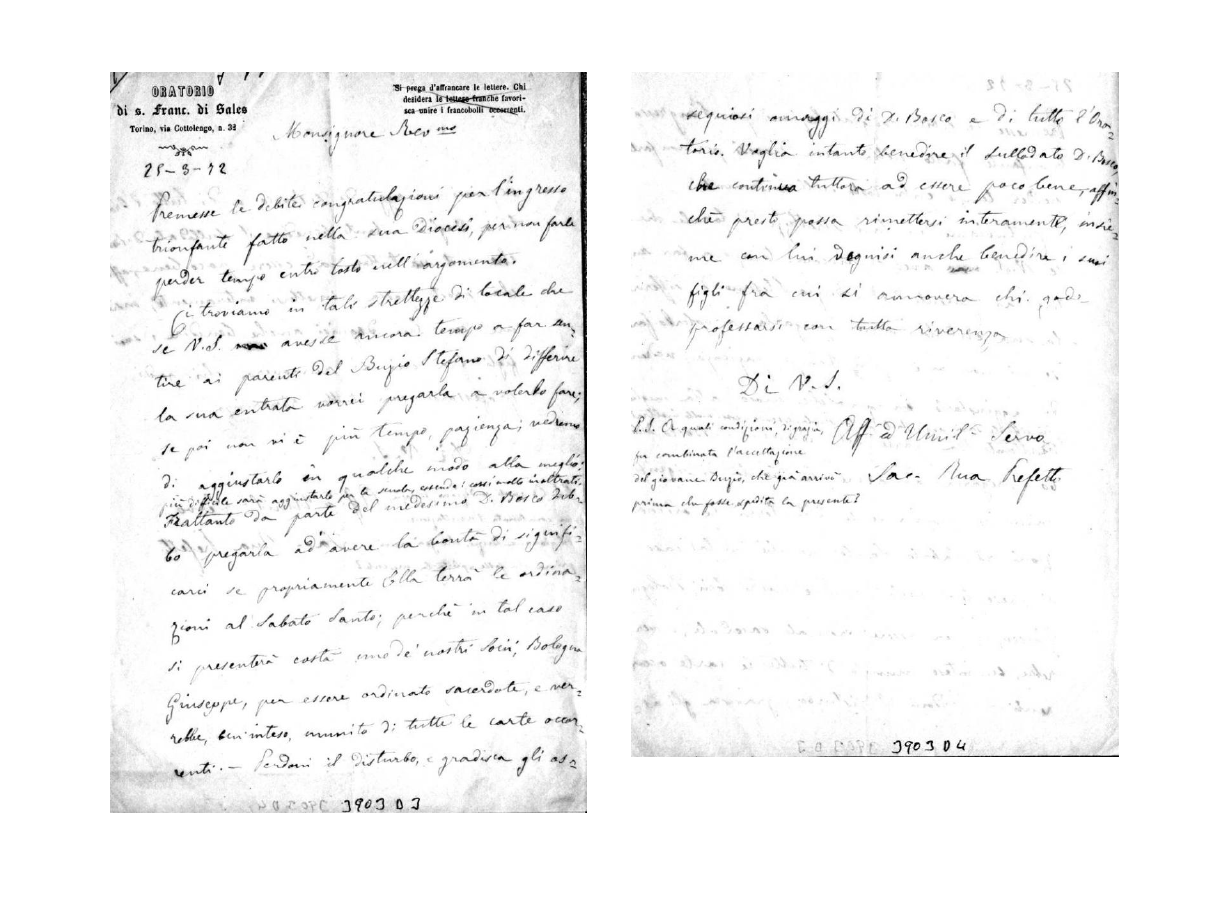 ORATORIO
di s. Franc. di Sales
Torino, via Cottolengo, n. 32
Si prega d'affrancare le lettere. Chi
desidera le lettere franche favori-
sca unire i francobolli occorrenti.
Monsignore Revmo
25-3-72
Premesse le debite congratulazioni per l'ingresso
trionfante fatto nella sua Diocesi, per non farle
perder tempo entro tosto nell'argomento.
Ci troviamo in tali strettezze di locale che
se V.S. avesse ancora tempo a far sen=
tire ai parenti del Bugio Stefano di differire
la sua entrata vorrei pregarla a volerlo fare;
se poi non vi è più tempo, pazienza; vedremo
di aggiustarlo in qualche modo alla meglio.
più difficile sarà aggiustarlo per la scuola, essendo i corsi molto inoltrati.
Frattanto da parte del medesimo D. Bosco deb=
bo pregarla ad avere la bontà di signifi=
carci se propriamente Ella terrà le ordina=
zioni al Sabato Santo; perchè in tal caso
si presenterà costà uno de' nostri Socii, Bologna
Giuseppe, per essere ordinato sacerdote, e ver=
rebbe, ben inteso, munito di tutte le carte occor=
renti. — Perdoni il disturbo, e gradisca gli os=
3903 D 3
sequiosi omaggi di D. Bosco e di tutto l'Ora=
torio. Voglia intanto benedire il sullodato D. Bosco,
che continua tuttora ad essere poco bene, affin=
chè presto possa rimettersi interamente, insie=
me con lui degnisi anche benedire i suoi
figli fra cui si annovera chi gode
professarsi con tutta riverenza
Di V.S.
Aff. ed Umil. Servo
Sac. Rua Prefetto
P.S. A quali condizioni, di grazia,
fu combinata l'accettazione
del giovane Bugio, che già arrivò
prima che fosse spedita la presente?
3903 D 4